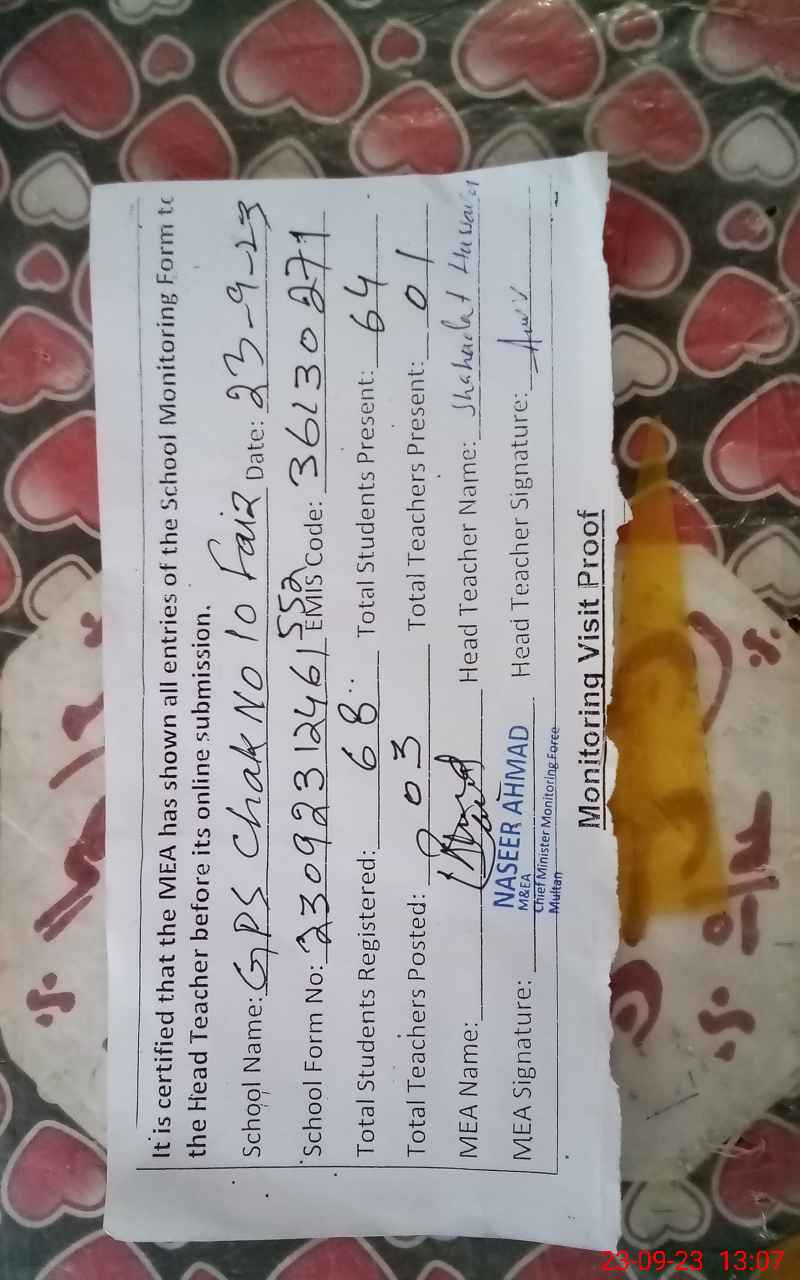 It is certified that the MEA has shown all entries of the School Monitoring Form to
the Head Teacher before its online submission.
School Name: GPS Chak No 10 Faiz Date: 23-9-23
School Form No: 23092312461552 EMIS Code: 36130271
Total Students Registered: 68 Total Students Present: 64
Total Teachers Posted: 03 Total Teachers Present: 01
MEA Name: Head Teacher Name: Shahadat Hussain
MEA Signature: Head Teacher Signature:
NASEER AHMAD
M&EA
Chief Minister Monitoring Force
Multan
Monitoring Visit Proof
23-09-23 13:07